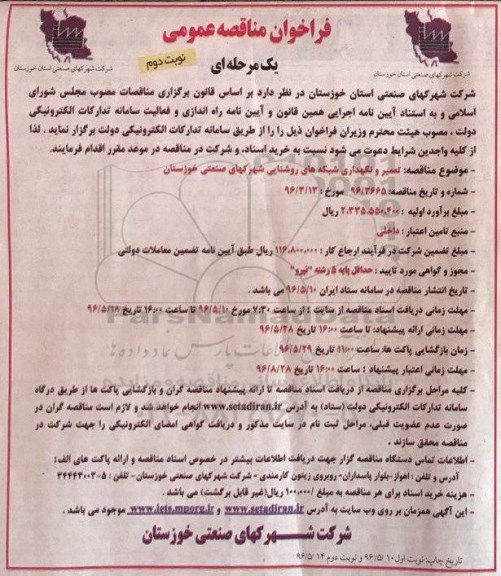 فراخوان مناقصه عمومی
یک مرحله ای
نوبت دوم
شرکت شهرکهای صنعتی استان خوزستان
شرکت شهرکهای صنعتی استان خوزستان
شرکت شهرکهای صنعتی استان خوزستان در نظر دارد بر اساس قانون برگزاری مناقصات مصوب مجلس شورای
اسلامی و به استناد آیین نامه اجرایی همین قانون و آیین نامه راه اندازی و فعالیت سامانه تدارکات الکترونیکی
دولت ، مصوب هیئت محترم وزیران فراخوان ذیل را از طریق سامانه تدارکات الکترونیکی دولت برگزار نماید . لذا
از کلیه واجدین شرایط دعوت می شود نسبت به خرید اسناد، و شرکت در مناقصه در موعد مقرر اقدام فرمایند.
- موضوع مناقصه: تعمیر و نگهداری شبکه های روشنایی شهرکهای صنعتی خوزستان
- شماره و تاریخ مناقصه: ۹۶/۳۶۶۵ مورخ : ۹۶/۳/۱۳
- مبلغ برآورد اولیه : ۲،۳۳۵،۵۵۰،۴۰۰ ریال
- منبع تامین اعتبار : داخلی
- مبلغ تضمین شرکت در فرآیند ارجاع کار : ۱۱۶،۸۰۰،۰۰۰ ریال طبق آیین نامه تضمین معاملات دولتی
- مجوز و گواهی مورد تایید : حداقل پایه ۵ رشته "نیرو"
- تاریخ انتشار مناقصه در سامانه ستاد ایران ۹۶/۵/۱۰ می باشد .
- مهلت زمانی دریافت اسناد مناقصه از سایت : از ساعت ۷:۳۰ مورخ ۹۶/۵/۱۰ تا ساعت ۱۶:۰۰ تاریخ ۹۶/۵/۱۸
- مهلت زمانی ارائه پیشنهاد: تا ساعت ۱۶:۰۰ تاریخ ۹۶/۵/۲۸
- زمان بازگشایی پاکت ها: ساعت ۱۱:۰۰ تاریخ ۹۶/۵/۲۹
- مهلت زمانی اعتبار پیشنهاد : ساعت ۱۶:۰۰ تاریخ ۹۶/۸/۲۸
- کلیه مراحل برگزاری مناقصه از دریافت اسناد مناقصه تا ارائه پیشنهاد مناقصه گران و بازگشایی پاکت ها از طریق درگاه
سامانه تدارکات الکترونیکی دولت (ستاد) به آدرس www.setadiran.ir انجام خواهد شد و لازم است مناقصه گران در
صورت عدم عضویت قبلی، مراحل ثبت نام در سایت مذکور و دریافت گواهی امضای الکترونیکی را جهت شرکت در
مناقصه محقق سازند .
- اطلاعات تماس دستگاه مناقصه گزار جهت دریافت اطلاعات بیشتر در خصوص اسناد مناقصه و ارائه پاکت های الف:
آدرس و تلفن : اهواز-بلوار پاسداران- روبروی زیتون کارمندی - شرکت شهرکهای صنعتی خوزستان- تلفن : ۵-۳۴۴۴۳۰۰۳
- هزینه خرید اسناد برای هر مناقصه به مبلغ /۱۰۰،۰۰۰ ریال(غیر قابل برگشت) می باشد .
- این آگهی همزمان بر روی وب سایت به آدرس www.setadiran.ir و www.iets.mporg.ir موجود می باشد .
شرکت شهرکهای صنعتی خوزستان
تاریخ چاپ: نوبت اول ۹۶/۵/۱۰ و نوبت دوم ۹۶/۵/۱۴